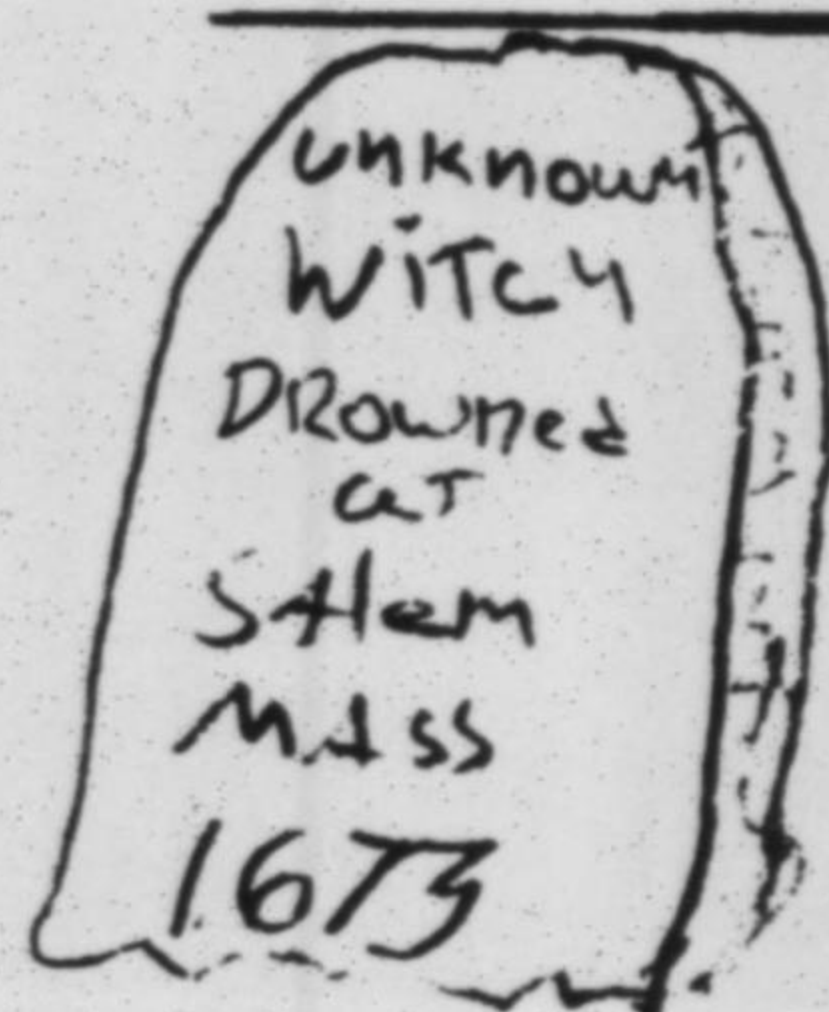 unknown
WiTCH
DROWNed
aT
SAlem
MASS
1673